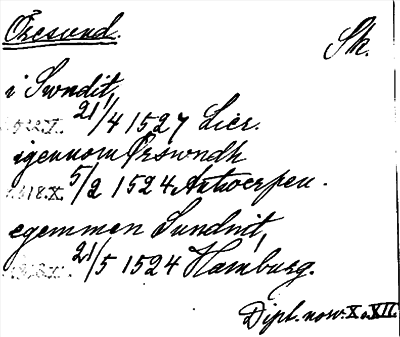 Øresund. Sk.
i Swndit,
21/4 1527 Lier.
igennom Ørswndh
5/2 1524 Antwerpen.
egemmen Sundnit,
21/5 1524 Hamburg.
Dipl. norv. X o. XII.